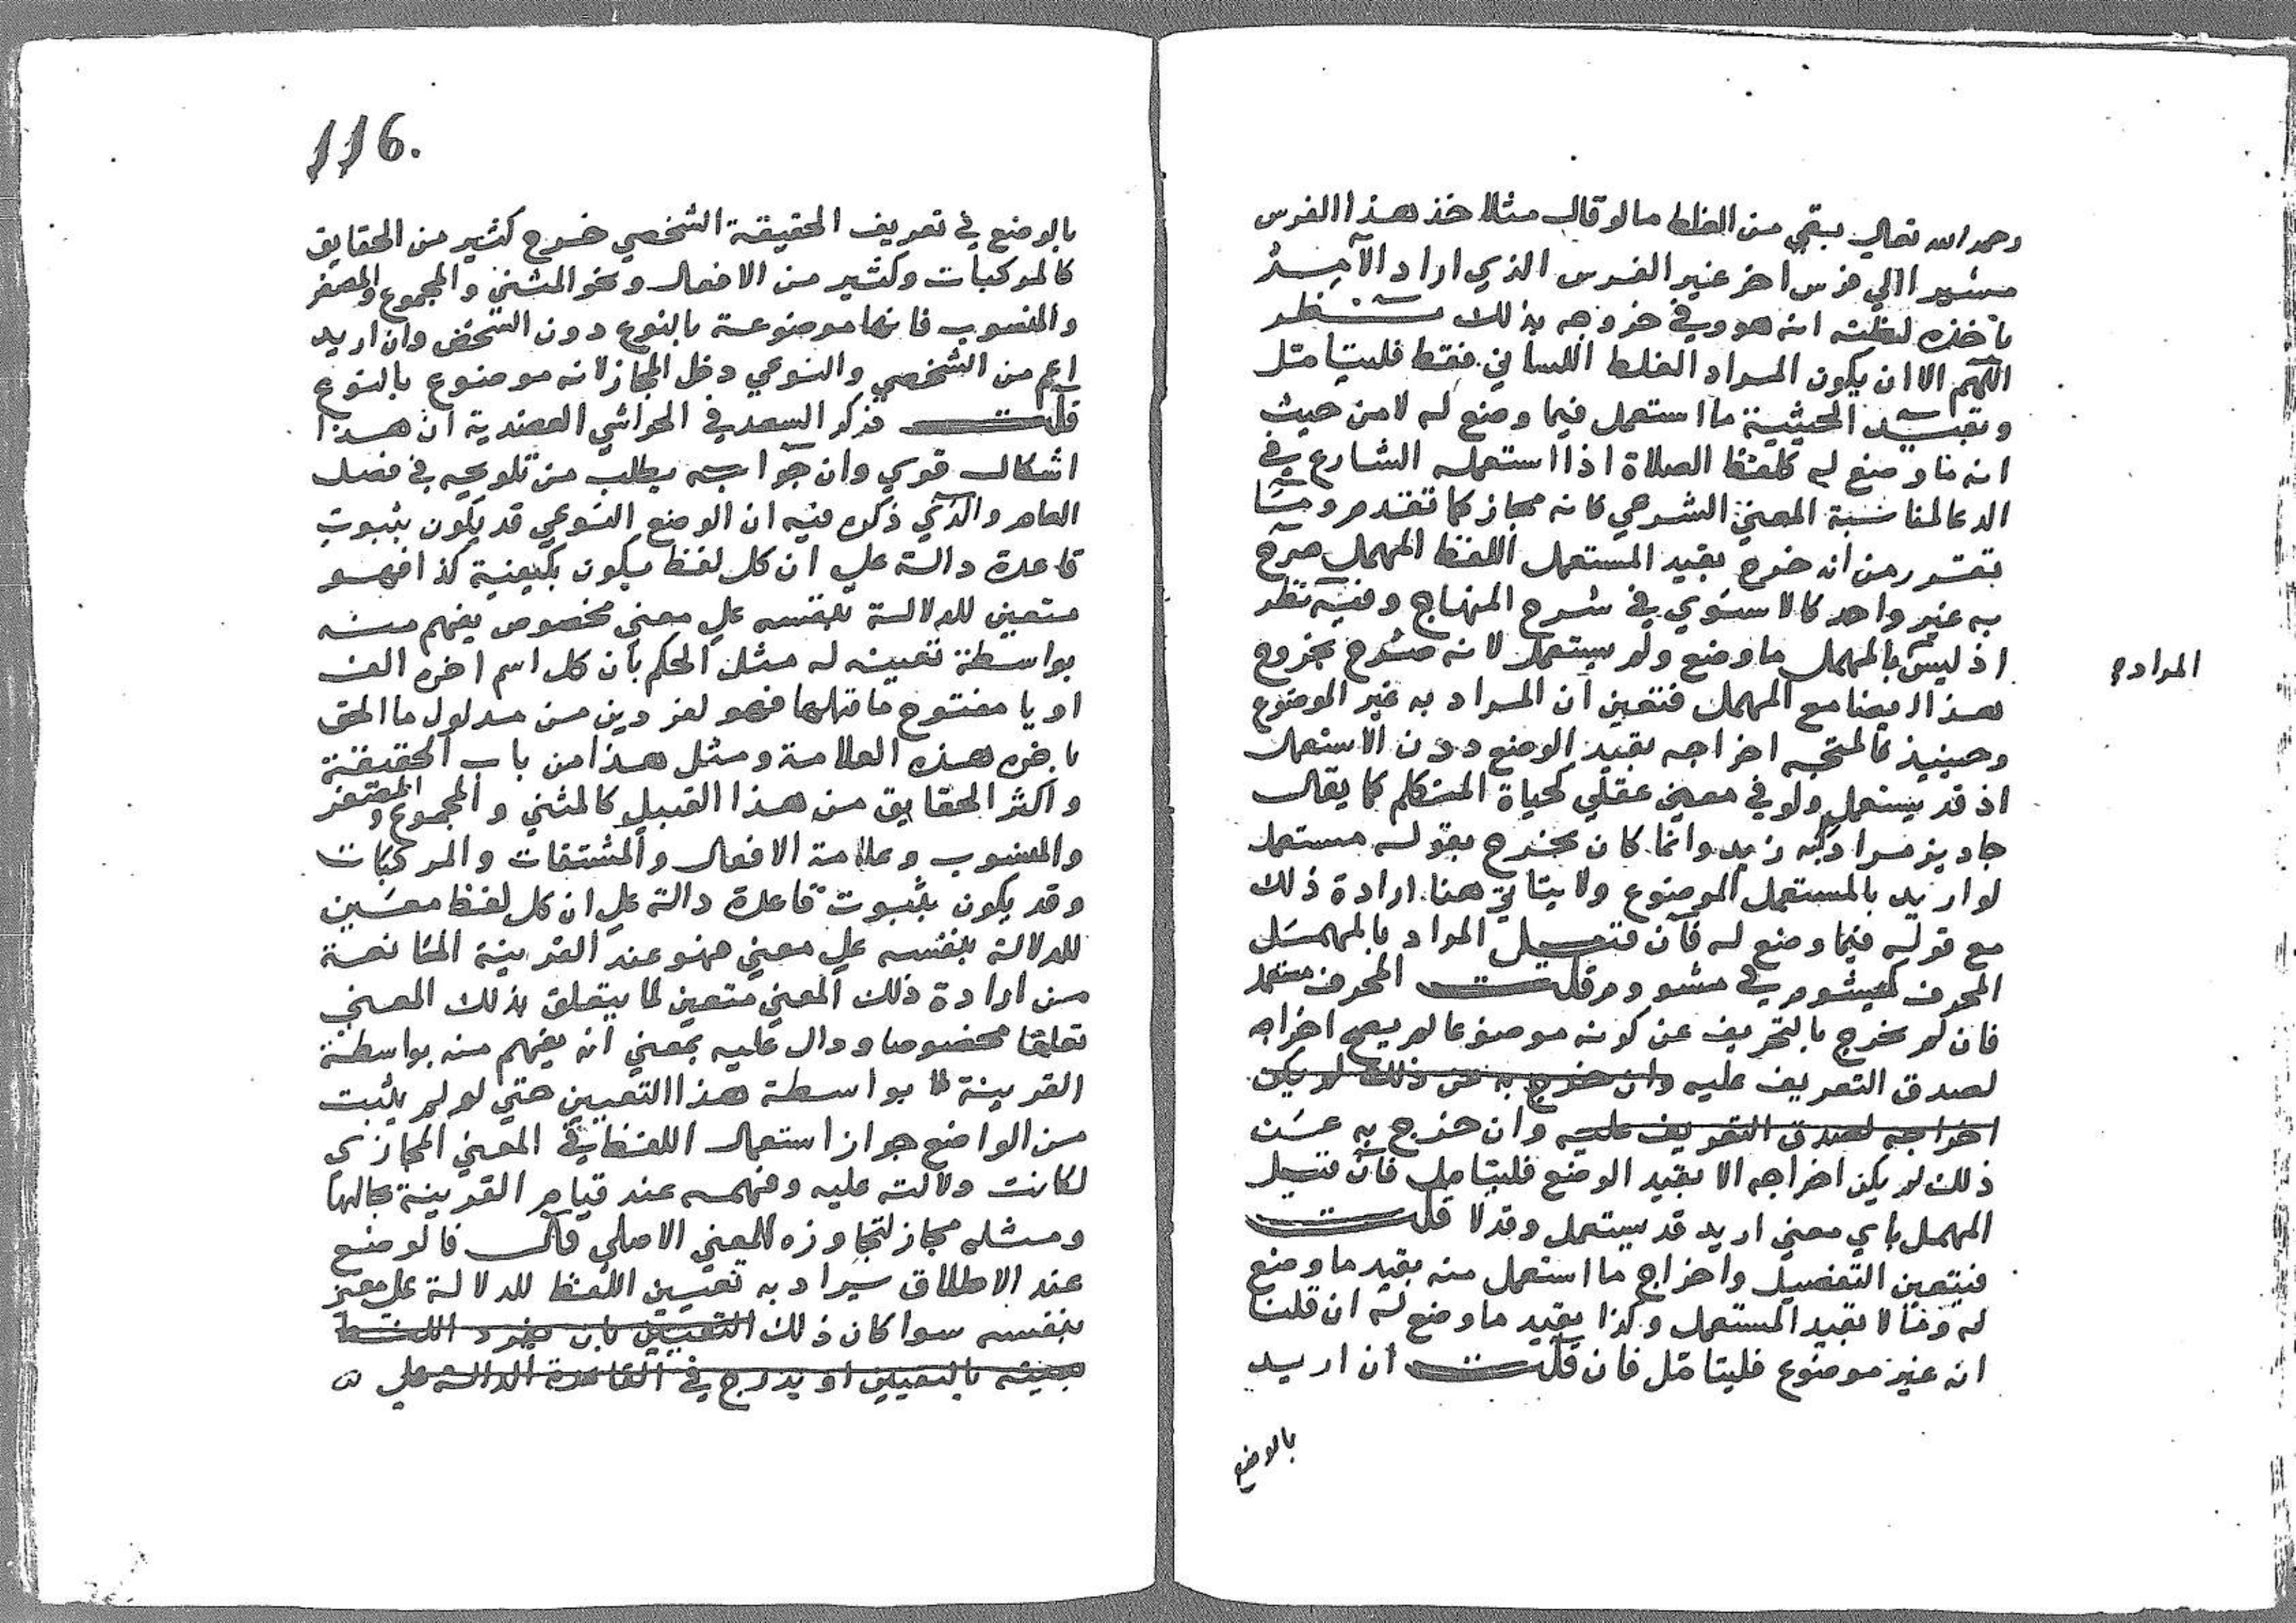 رحمه الله تعالى بقي من الغلط ما لو قال مثلا خذ هذا الفرس
مشيرا الي فرس اخر غير الفرس الذي اراد الآمر
ياخذه لظنه انه هو وفي خروجه بذلك نظر
اللهم الا ان يكون المراد الغلط اللساني فقط فليتامل
وبقيد الحيثية ما استعمل فيما وضع له لا من حيث
انه ما وضع له كلفظ الصلاة اذا استعمله الشارع في
الدعا لمناسبة المعنى الشرعي فانه مجاز كما تقدم وما
تقرر من انه خرج بقيد المستعمل اللفظ المهمل صرح
به غير واحد كالاسنوي في شرح المنهاج وفيه نظر
اذ ليس بالمهمل ما وضع ولم يستعمل لانه صرح بخروج
المراد
هذا ايضا مع المهمل فتعين ان المراد به غير الموضوع
وحينيذ فالمتجه اخراجه بقيد الوضع دون الاستعمال
اذ قد يستعمل ولو في معنى عقلي كحياة المتكلم كما يقال
جا ديز مرادا به زيد وانما كان يخرج بقوله مستعمل
لو اريد بالمستعمل الموضوع ولا يتاتي هنا ارادة ذلك
مع قوله فيما وضع له فان قيل المراد بالمهمل
المحرف في قلت المحرف مستعمل
فان لم يخرج بالتحريف عن كونه موضوعا لم يصح اخراجه
لصدق التعريف عليه وان خرج به عن ذلك لم يكن
اخراجه لصدق التعريف عليه وان خرج به عن
ذلك لم يكن اخراجه الا بقيد الوضع فليتامل فان قيل
المهمل باي معنى اريد قد يستعمل وقد لا قلت
فيتعين التفصيل واخراج ما استعمل منه بقيد ما وضع
له وما لا بقيد المستعمل وكذا بقيد ما وضع له ان قلنا
انه غير موضوع فليتامل فان قلت ان اريد
بالوضع
116.
بالوضع في تعريف الحقيقة الشخصي خرج كثير من الحقايق
كالمركبات وكثير من الافعال ونحو المثنى والمجموع والمصغر
والمنسوب فانها موضوعة بالنوع دون الشخص وان اريد
اعم من الشخصي والنوعي دخل المجاز لانه موضوع بالنوع
قلت ذكر السعد في الحواشي العضدية ان هذا
اشكال قوي وان جوابه يطلب من تلويحه في فصل
العام والذي ذكره فيه ان الوضع النوعي قد يكون بثبوت
قاعدة دالة علي ان كل لفظ يكون بكيفية كذا فهو
متعين للدلالة بنفسه علي معنى مخصوص يفهم منه
بواسطة تعيينه له مثل الحكم بان كل اسم اخره الف
او يا مفتوح ما قبلها فهو لفردين من مدلول ما الحق
باخره هذه العلامة ومثل هذا من باب الحقيقة
واكثر الحقايق من هذا القبيل كالمثني والمجموع والمصغر
والمنسوب وعامة الافعال والمشتقات والمركبات
وقد يكون بثبوت قاعدة دالة علي ان كل لفظ معين
للدلالة بنفسه علي معنى فهو عند القرينة المانعة
من ارادة ذلك المعنى متعين لما يتعلق بذلك المعنى
تعلقا مخصوصا ودال عليه بمعنى انه يفهم منه بواسطة
القرينة لا بواسطة هذا التعيين حتي لو لم يثبت
من الواضع جواز استعمال اللفظ في المعنى المجازي
لكانت دلالته عليه وفهمه عند قيام القرينة بحالها
ومثله مجاز لتجاوزه المعنى الاصلي قال فالوضع
عند الاطلاق يراد به تعيين اللفظ للدلالة علي معنى
بنفسه سوا كان ذلك التعيين بان يفرد اللفظ
بعينه بالتعيين او يدرج في القاعدة الدالة علي